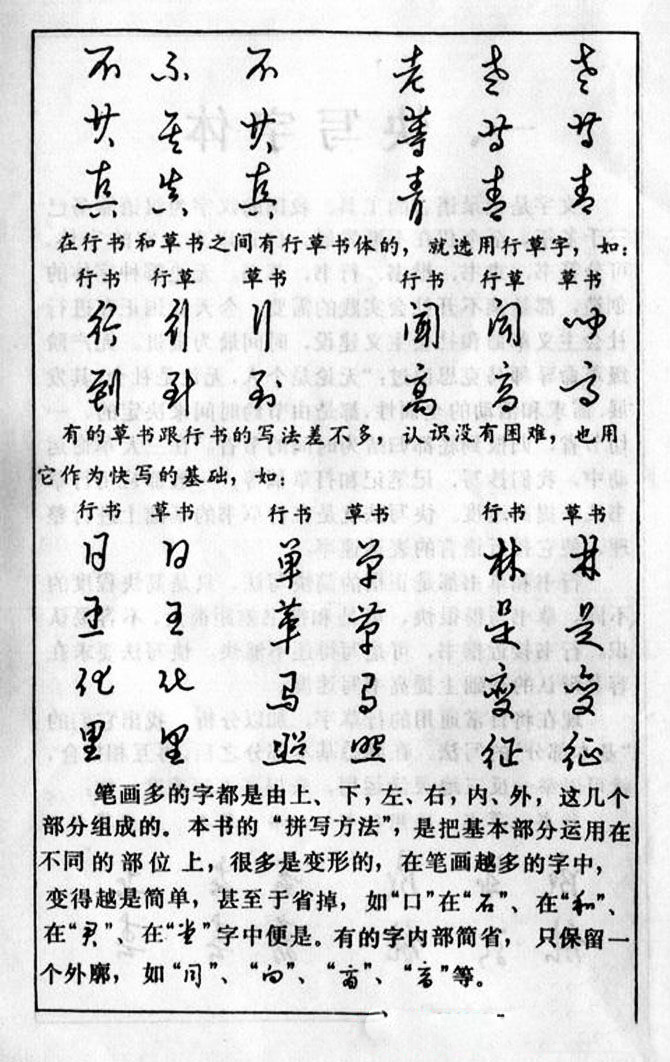 不 不 不 老 老 老
共 共 共 等 等 等
真 真 真 青 青 青
在行书和草书之间有行草书体的，就选用行草字，如：
行书 行草 草书 行书 行草 草书
行 行 行 闻 闻 闻
到 到 到 高 高 高
有的草书跟行书的写法差不多，认识没有困难，也用
它作为快写的基础，如：
行书 草书 行书 草书 行书 草书
日 日 单 单 林 林
王 王 草 草 是 是
化 化 马 马 变 变
里 里 照 照 征 征
笔画多的字都是由上、下，左、右，内、外，这几个
部分组成的。本书的“拼写方法”，是把基本部分运用在
不同的部位上，很多是变形的，在笔画越多的字中，
变得越是简单，甚至于省掉，如“口”在“石”、在“和”、
在“君”、在“堂”字中便是。有的字内部简省，只保留一
个外廓，如“同”、“向”、“高”、“音”等。